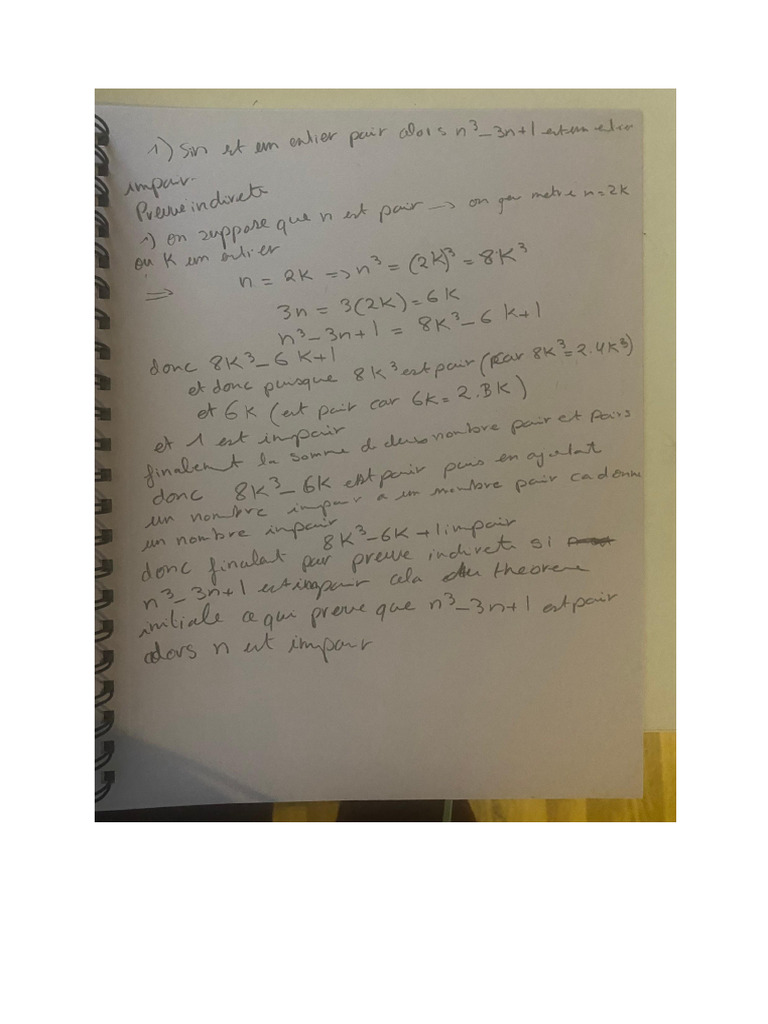 1) Si n est un entier pair alors n³-3n+1 est un
impair.
Preuve indirecte
1) on suppose que n est pair → on metre n=2K
ou K un entier
⇒ n = 2K ⇒ n³ = (2K)³ = 8K³
3n = 3(2K) = 6K
n³-3n+1 = 8K³-6K+1
donc 8K³-6K+1
et donc puisque 8K³ est pair (car 8K³=2.4K³)
et 6K (est pair car 6K=2.3K)
et 1 est impair
finalement la somme d nombre pair et pairs
donc 8K³-6K est pair puis en
un nombre impair a un nombre pair ca donne
un nombre impair
8K³-6K+1 impair
donc par preuve indirecte si
n³-3n+1 est impair cela theoreme
initiale ce qui preuve que n³-3n+1 est pair
alors n est impair